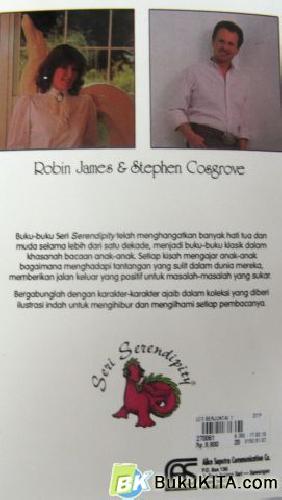 Robin James & Stephen Cosgrove
Buku-buku Seri Serendipity telah menghangatkan banyak hati tua dan
muda selama lebih dari satu dekade, menjadi buku-buku klasik dalam
khasanah bacaan anak-anak. Setiap kisah mengajar anak-anak
bagaimana menghadapi tantangan yang sulit dalam dunia mereka,
memberikan jalan keluar yang positif untuk masalah-masalah yang sukar.
Bergabunglah dengan karakter-karakter ajaib dalam koleksi yang diberi
ilustrasi indah untuk menghibur dan mengilhami setiap pembacanya.
Seri Serendipity
270061
P.O. Box 136
BK BukuKITA.com